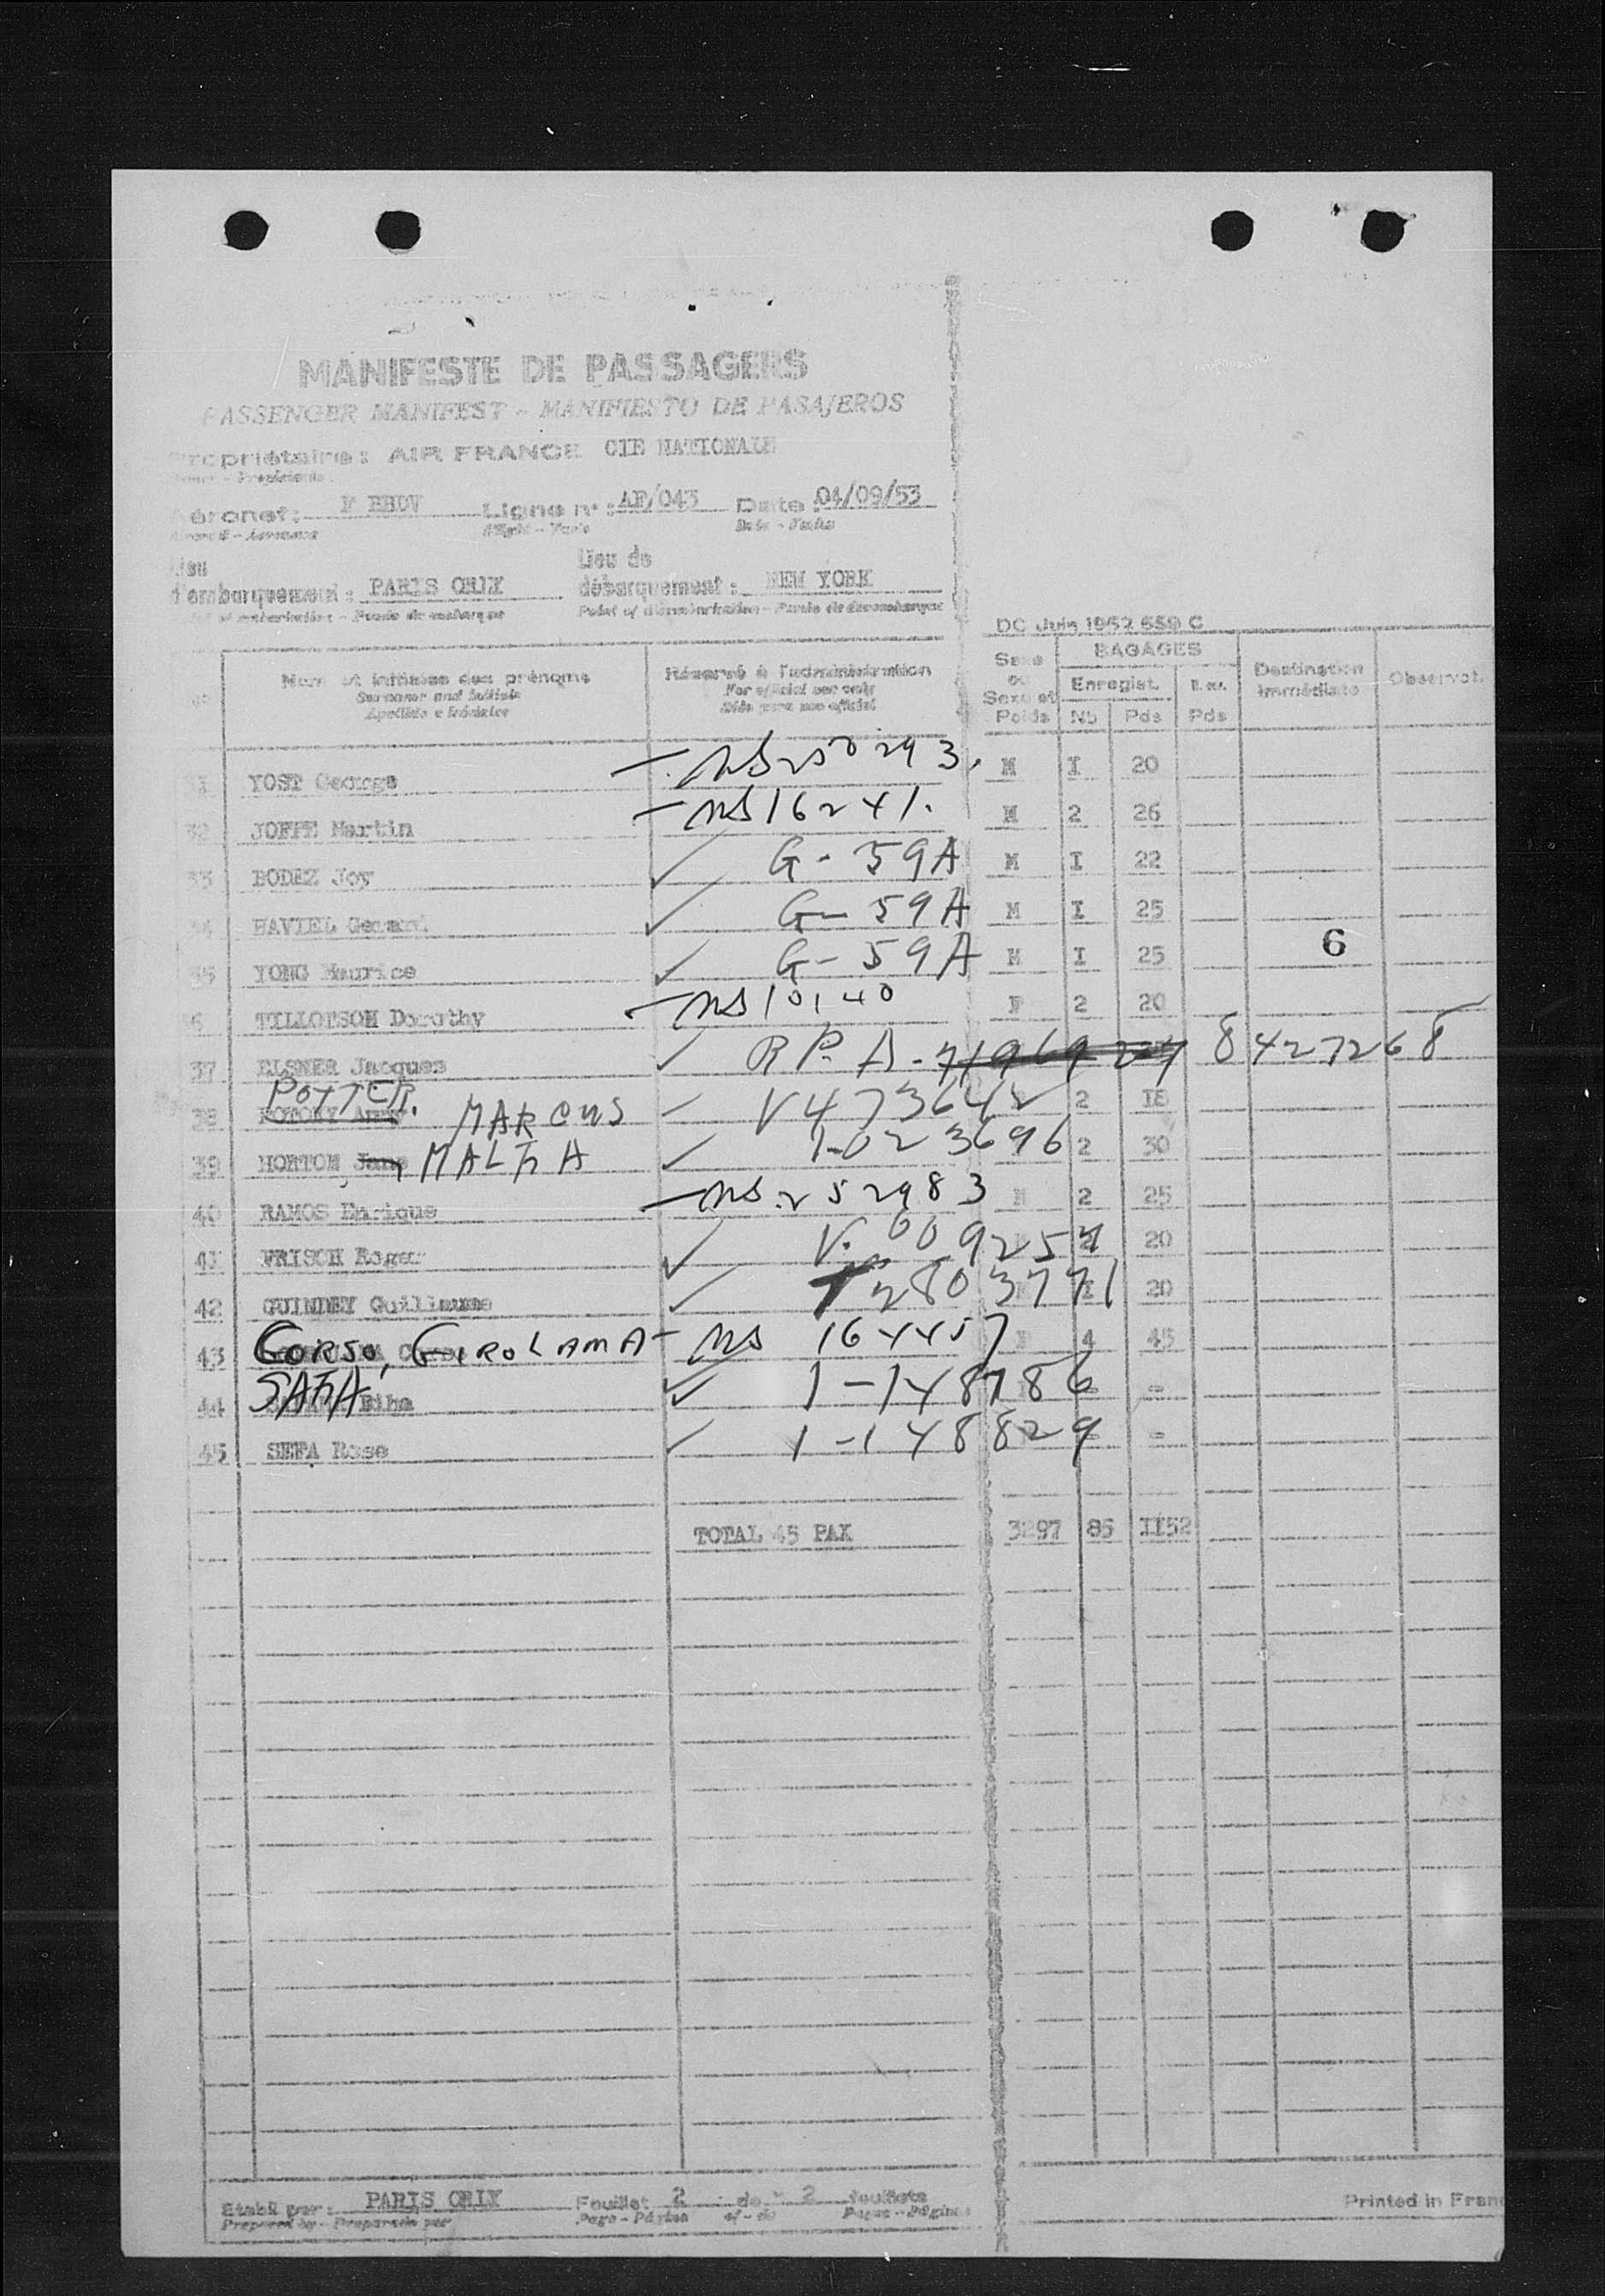 MANIFESTE DE PASSAGERS
PASSENGER MANIFEST - MANIFIESTO DE PASAJEROS
Propriétaire: AIR FRANCE CIE NATIONALE
Aéronef: F BHDV Ligne n°: AF/043 Date: 04/09/53
Lieu d'embarquement: PARIS ORLY
Lieu de débarquement: NEW YORK
DC Juin 1952 659 C
Nom et initiales des prénoms
Surname and initials
Apellido e iniciales
Réservé à l'administration
For official use only
Sólo para uso oficial
Sexe ou Sexe et Poids
BAGAGES
Enregist.
Nb Pds Pds
Destination immédiate
Observat.
31 YOST George - NS 250293. M I 20
32 JOFFE Martin - NS 16241. M 2 26
33 BODEZ Joy ✓ G-59A M I 22
34 HAVIEL Gerard ✓ G-59A M I 25
35 YONG Maurice ✓ G-59A M I 25
6
36 TILLOTSON Dorothy - NS 10140 F 2 20
37 ELSNER Jacques ✓ R P. A- 8427268
POTTER.
38 MARCUS V 473642 2 18
39 HORTON Jane MALTA ✓ 1-023696 2 30
40 RAMOS Enrique - NS 252983 M 2 25
41 FRISCH Roger ✓ V. 009254 20
42 GUINDEY Guillaume ✓ 2803771 I 20
43 CORSO, GIROLAMA - NS 164457 F 4 45
44 SAFA Biha ✓ 1-148786 -
45 SEFA Rose ✓ 1-148829 -
TOTAL 45 PAX 3297 85 II52
Etabli par: PARIS ORLY Feuillet 2 de 2 feuillets
Prepared by - Preparado por Page - Página of - de Pages - Páginas
Printed in Fran